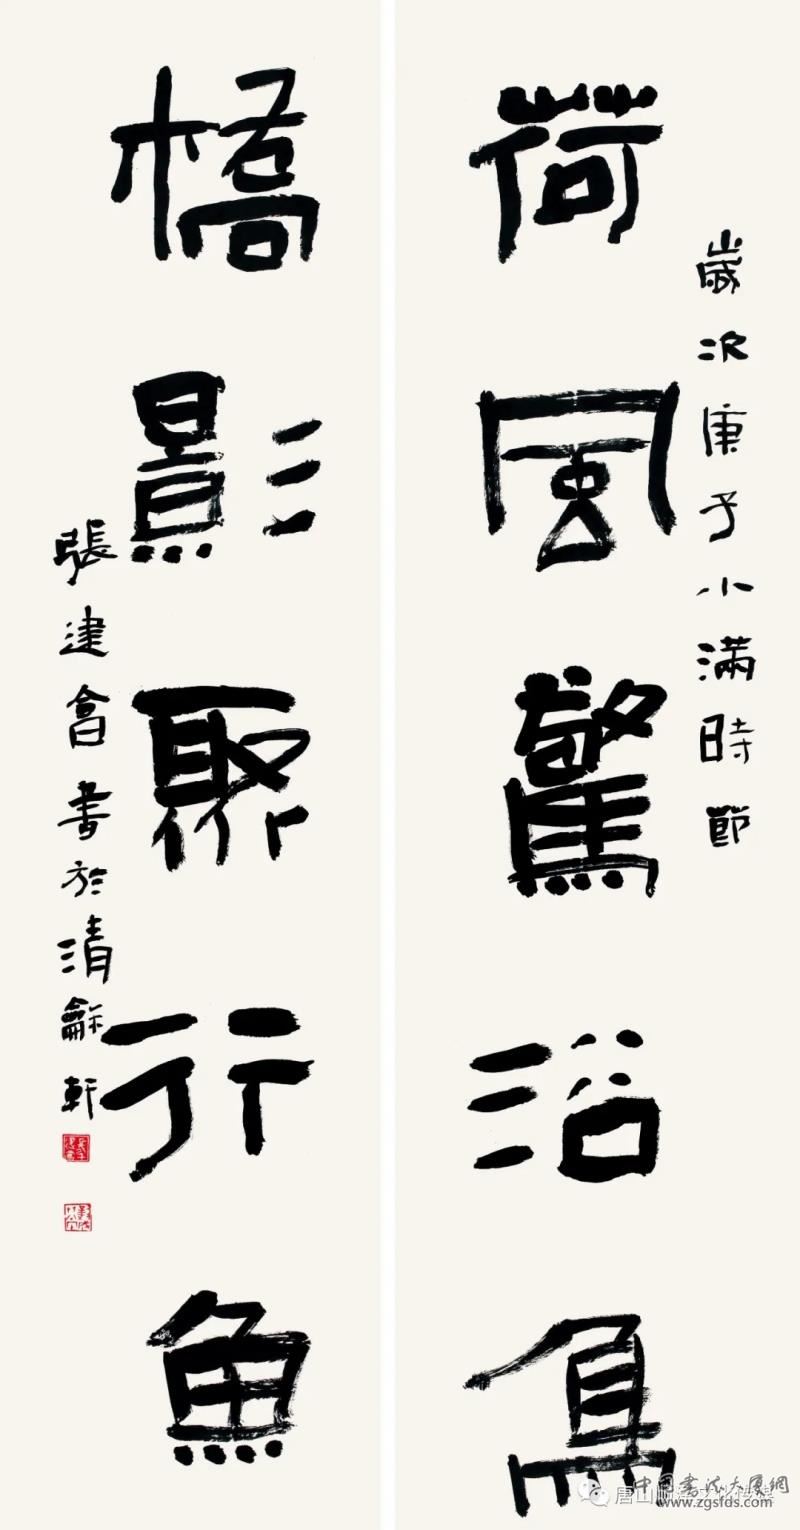 荷風驚浴鳥
歲次庚子小滿時節
橋影聚行魚
張建會書於清龢軒
中国書法大廈網
www.zgsfds.com